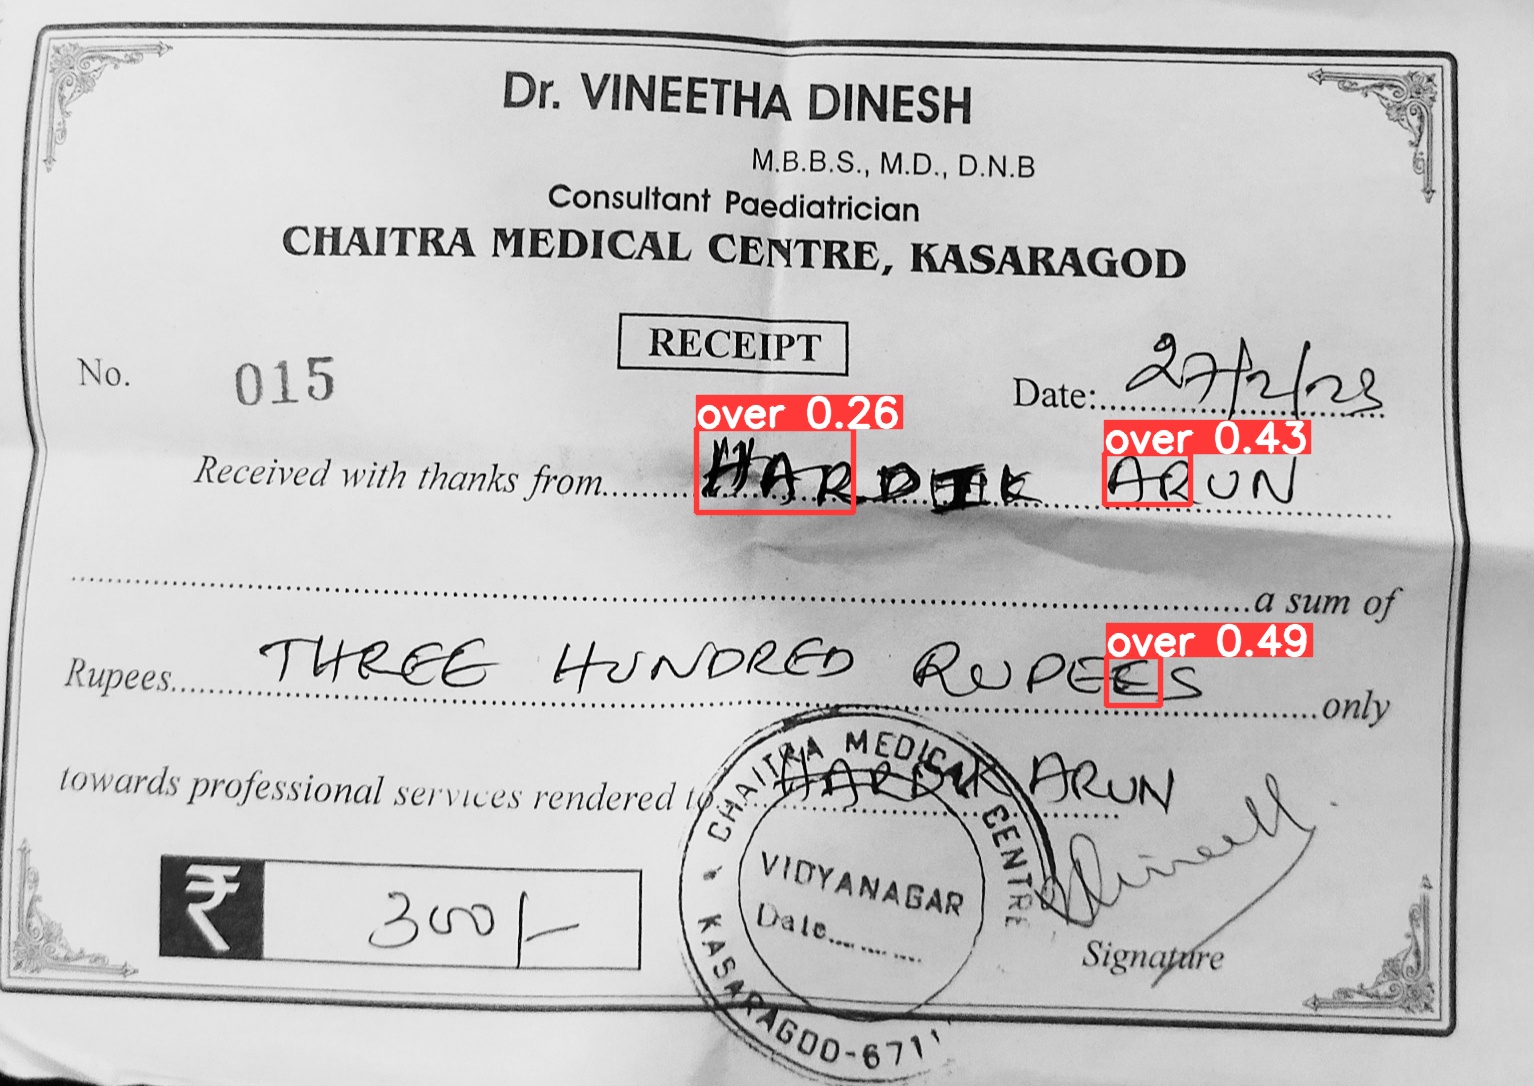 Dr. VINEETHA DINESH
M.B.B.S., M.D., D.N.B
Consultant Paediatrician
CHAITRA MEDICAL CENTRE, KASARAGOD
RECEIPT
No. 015
Date: 27/2/23
over 0.26
over 0.43
Received with thanks from HARDIK ARUN
a sum of
over 0.49
Rupees THREE HUNDRED RUPEES only
towards professional services rendered to HARDIK ARUN
CHAITRA MEDICAL CENTRE
VIDYANAGAR
Date
KASARAGOD-671
₹ 300/-
Signature